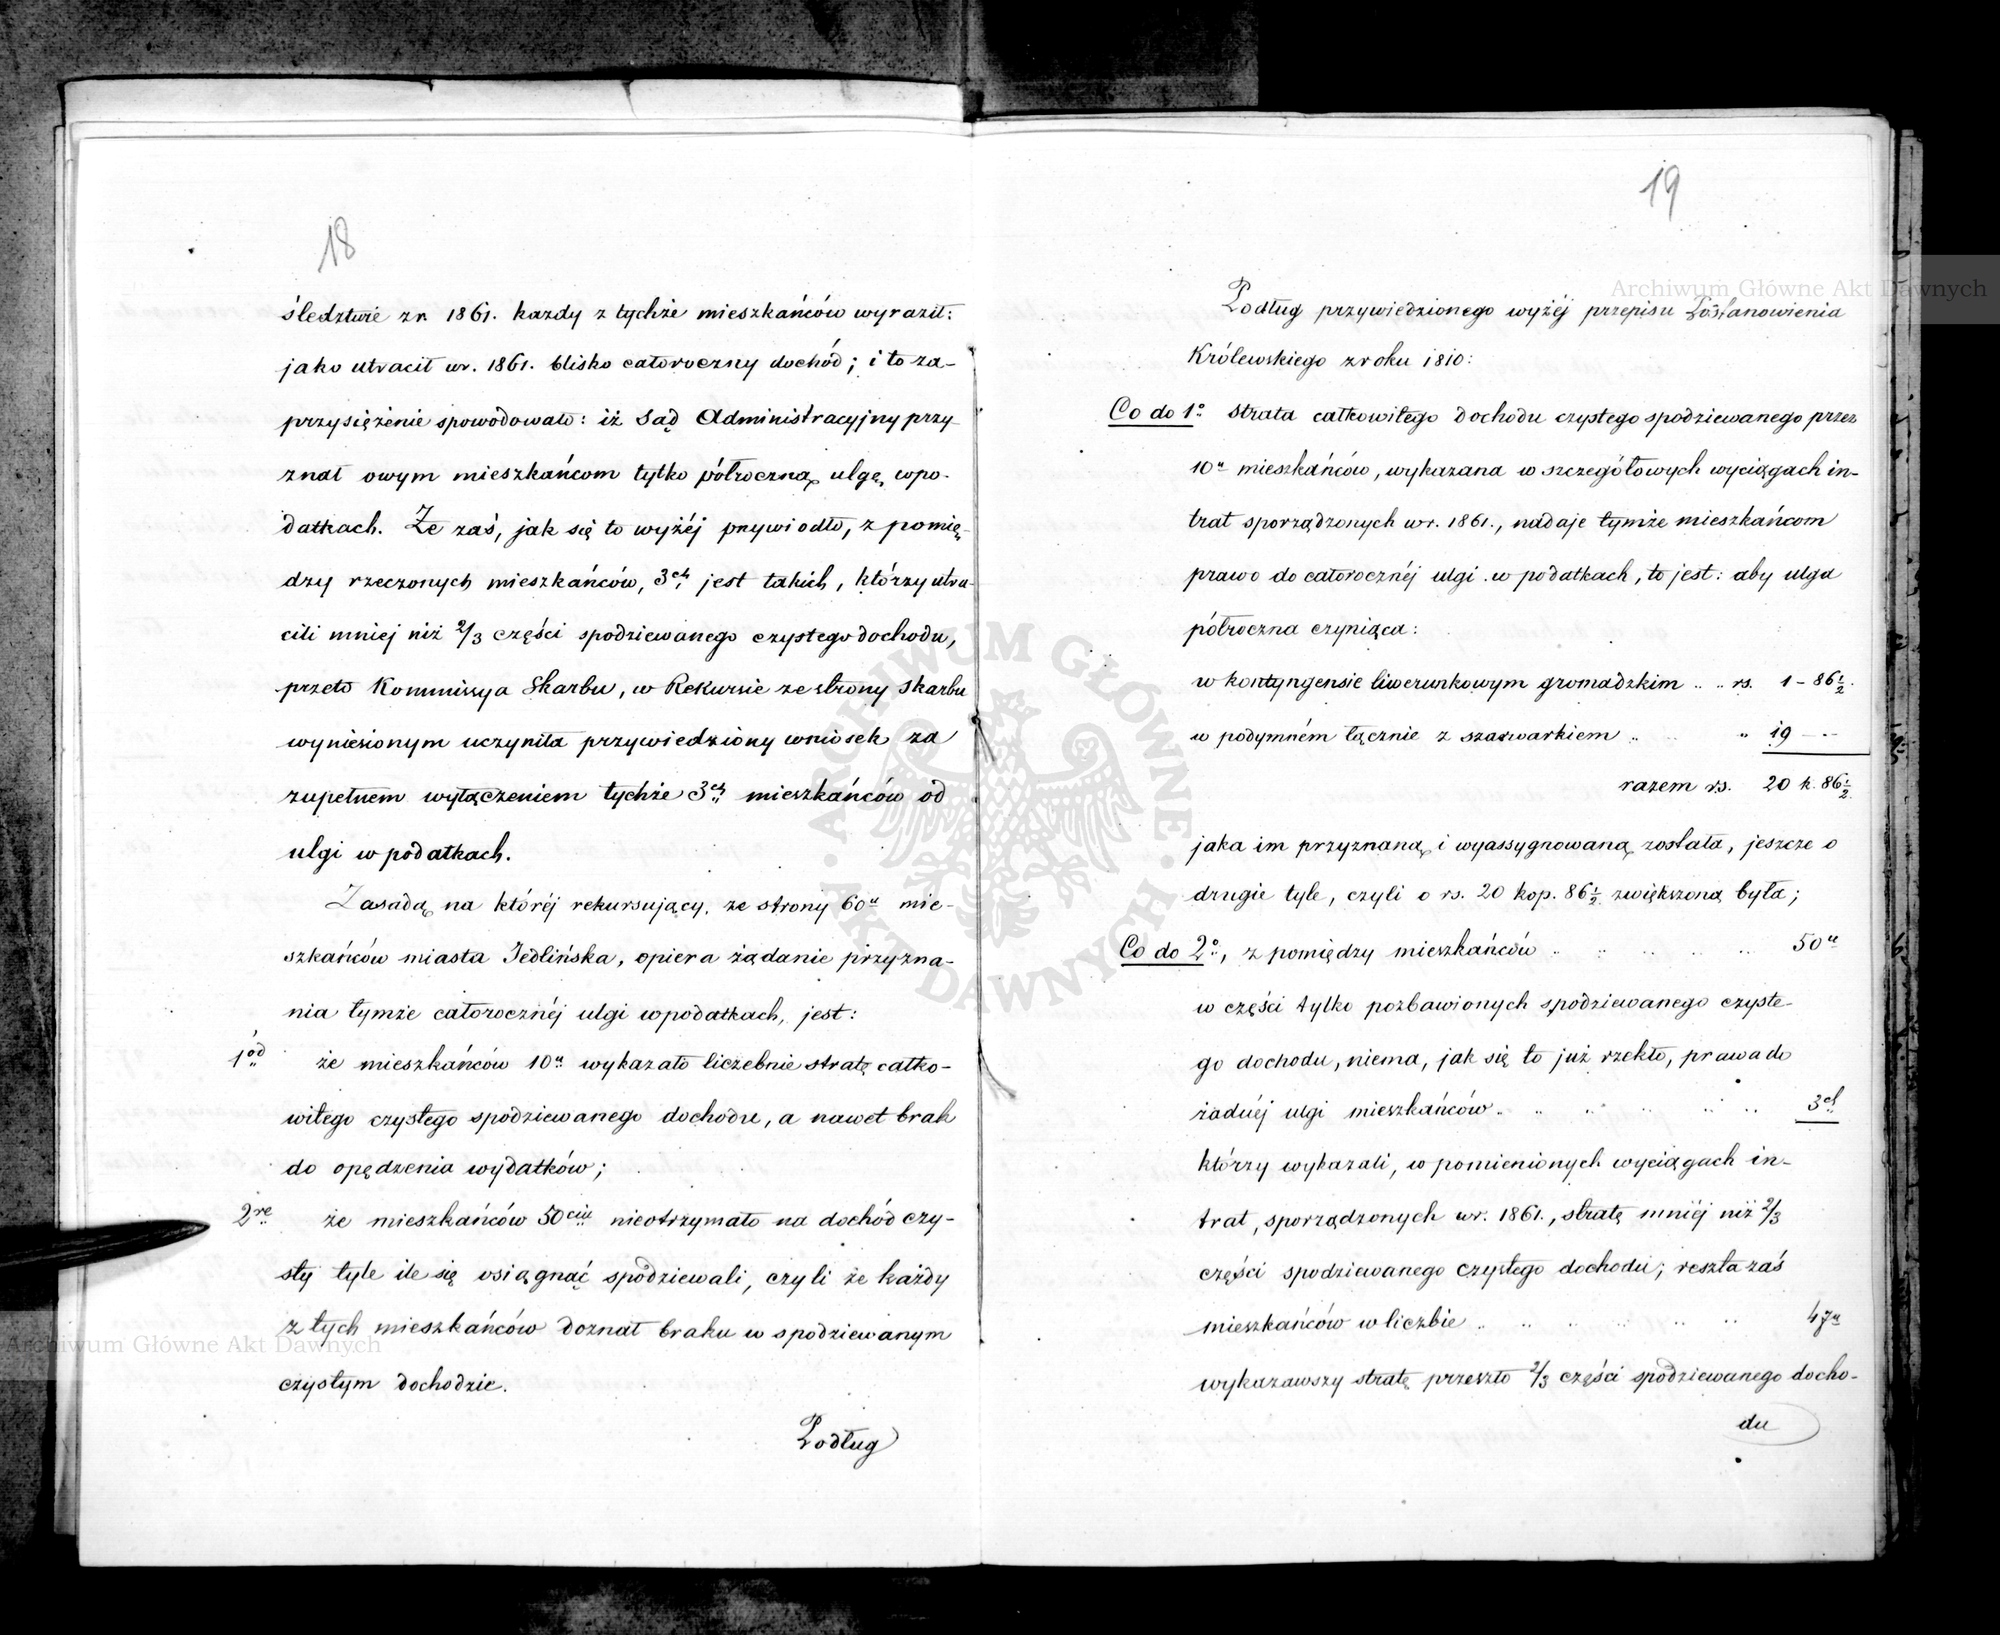 18
śledztwie z r. 1861. każdy z tychże mieszkańców wyraził:
jako utracił w r. 1861. blisko całoroczny dochód; i to za-
przysiężenie spowodowało: iż Sąd Administracyjny przy-
znał owym mieszkańcom tylko półroczną ulgę w po-
datkach. Że zaś, jak się to wyżéj przywiodło, z pomię-
dzy rzeczonych mieszkańców, 3ch jest takich, którzy utra-
cili mniej niż 2/3 części spodziewanego czystego dochodu,
przeto Kommissya Skarbu, w Rekursie ze strony Skarbu
wyniesionym uczyniła przywiedziony wniosek za
zupełnem wyłączeniem tychże 3ch mieszkańców od
ulgi w podatkach.
Zasadą na któréj rekursujący, ze strony 60u mie-
szkańców miasta Jedlińska, opiera żądanie przyzna-
nia tymże całorocznéj ulgi w podatkach, jest:
1ód że mieszkańców 10u wykazało liczebnie stratę całko-
witego czystego spodziewanego dochodu, a nawet brak
do opędzenia wydatków;
2re że mieszkańców 50ciu nieotrzymało na dochód czy-
sty tyle ile się osiągnąć spodziewali, czyli że każdy
z tych mieszkańców doznał braku w spodziewanym
czystym dochodzie.
Podług
19
Podług przywiedzionego wyżéj przepisu Postanowienia
Królewskiego z roku 1810:
Co do 1o strata całkowitego dochodu czystego spodziewanego przez
10u mieszkańców, wykazana w szczegółowych wyciągach in-
trat sporządzonych w r. 1861., nadaje tymże mieszkańcom
prawo do całorocznéj ulgi w podatkach, to jest: aby ulga
półroczna czyniąca:
w kontyngensie liwerunkowym gromadzkim .. .. rs. 1 - 86 1/2.
w podymném łącznie z szarwarkiem .. .. " 19 - ..
razem rs. 20 k. 86 1/2.
jaka im przyznaną i wyassygnowaną została, jeszcze o
drugie tyle, czyli o rs. 20 kop. 86 1/2 zwiększoną była;
Co do 2o, z pomiędzy mieszkańców .. .. .. .. .. 50u
w części tylko pozbawionych spodziewanego czyste-
go dochodu, niema, jak się to już rzekło, prawa do
żadnéj ulgi mieszkańców .. .. .. .. .. 3ch
którzy wykazali, w pomienionych wyciągach in-
trat, sporządzonych w r. 1861., stratę mniéj niż 2/3
części spodziewanego czystego dochodu; reszta zaś
mieszkańców w liczbie .. .. .. .. .. 47u
wykazawszy stratę przeszło 2/3 części spodziewanego docho-
du
Archiwum Główne Akt Dawnych
Archiwum Główne Akt Dawnych
ARCHIWUM GŁÓWNE
AKT DAWNYCH